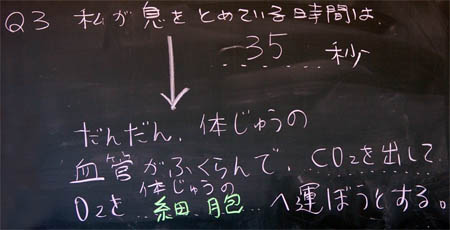 Q3 私が息をとめている時間は
35 秒
だんだん、体じゅうの
血管がふくらんで、CO2を出して
体じゅうの
O2を 細胞 へ運ぼうとする。